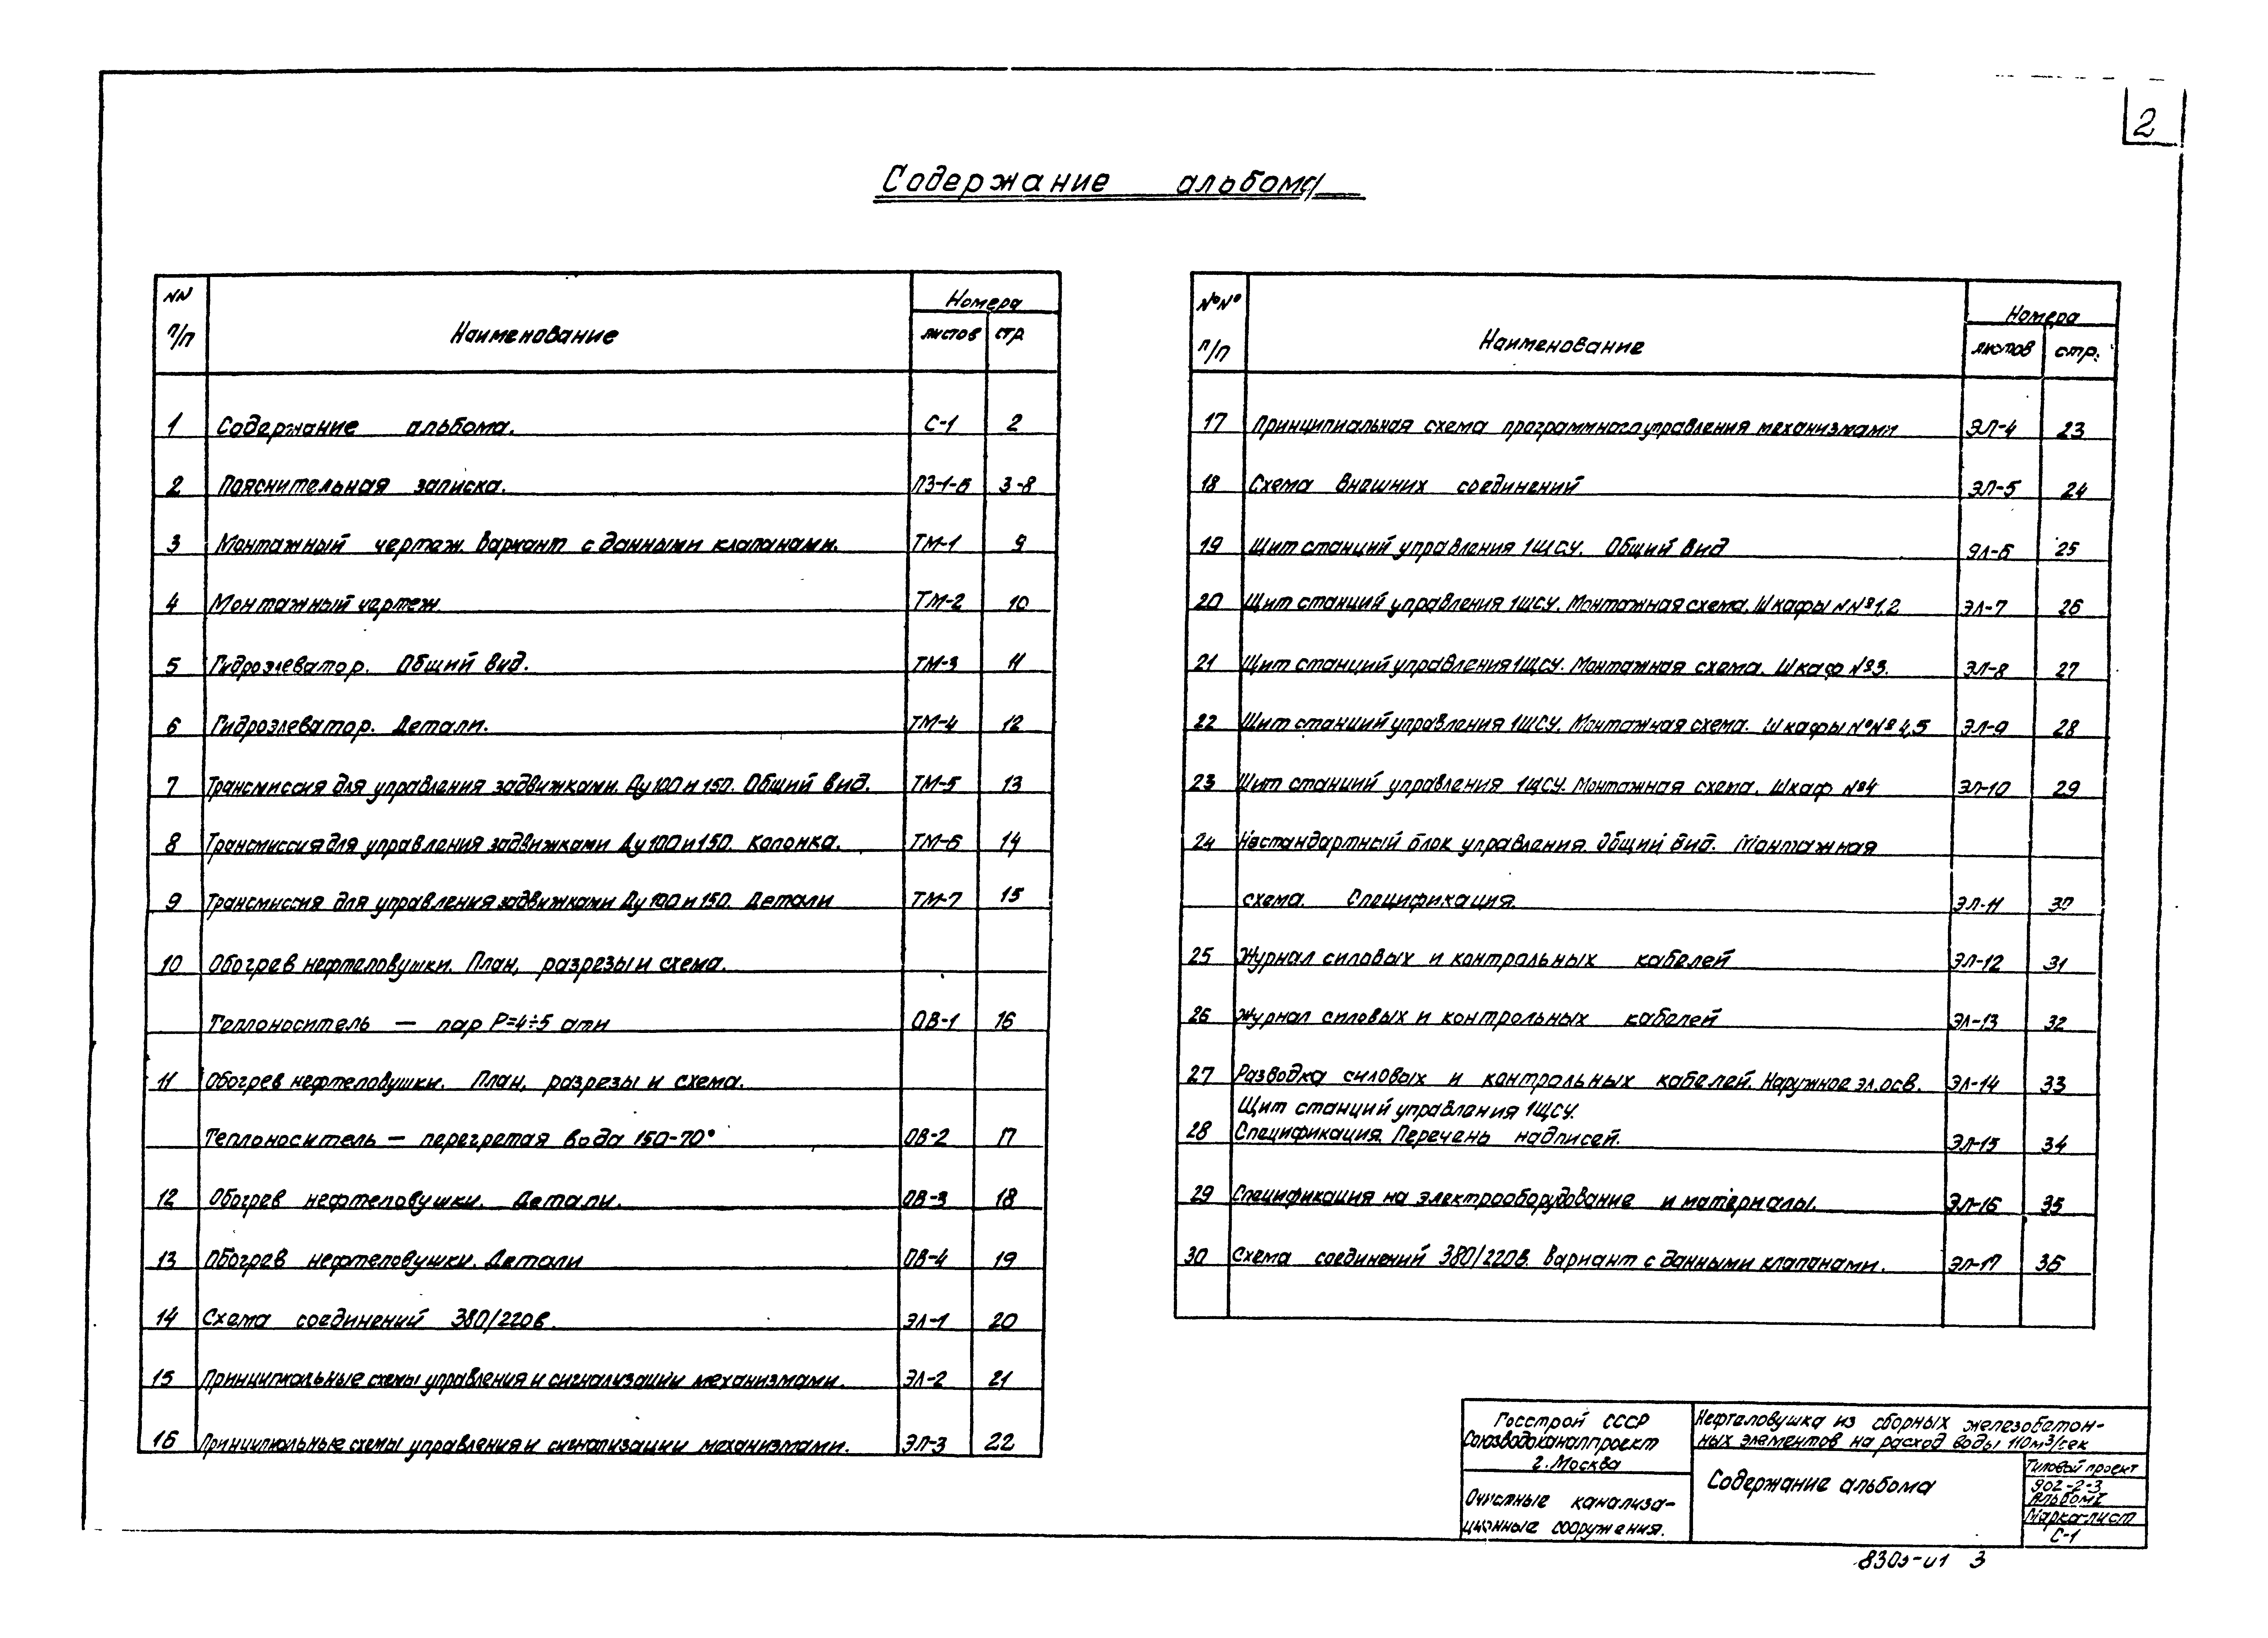 2
Содержание альбома
NN п/п Наименование Номера
листов стр.
1 Содержание альбома. С-1 2
2 Пояснительная записка. ПЗ-1-6 3-8
3 Монтажный чертеж. Вариант с данными клапанами. ТМ-1 9
4 Монтажный чертеж. ТМ-2 10
5 Гидроэлеватор. Общий вид. ТМ-3 11
6 Гидроэлеватор. Детали. ТМ-4 12
7 Трансмиссия для управления задвижками Ду 100 и 150. Общий вид. ТМ-5 13
8 Трансмиссия для управления задвижками Ду 100 и 150. Колонка. ТМ-6 14
9 Трансмиссия для управления задвижками Ду 100 и 150. Детали ТМ-7 15
10 Обогрев нефтеловушки. План, разрезы и схема.
Теплоноситель — пар Р=4÷5 ати ОВ-1 16
11 Обогрев нефтеловушки. План, разрезы и схема.
Теплоноситель — перегретая вода 150-70° ОВ-2 17
12 Обогрев нефтеловушки. Детали. ОВ-3 18
13 Обогрев нефтеловушки. Детали ОВ-4 19
14 Схема соединений 380/220в. ЭЛ-1 20
15 Принципиальные схемы управления и сигнализации механизмами. ЭЛ-2 21
16 Принципиальные схемы управления и сигнализации механизмами. ЭЛ-3 22
№№ п/п Наименование Номера
листов стр.
17 Принципиальная схема программного управления механизмами ЭЛ-4 23
18 Схема внешних соединений ЭЛ-5 24
19 Щит станций управления 1ЩСУ. Общий вид ЭЛ-6 25
20 Щит станций управления 1ЩСУ. Монтажная схема. Шкафы N№1,2 ЭЛ-7 26
21 Щит станций управления 1ЩСУ. Монтажная схема. Шкаф №3. ЭЛ-8 27
22 Щит станций управления 1ЩСУ. Монтажная схема. Шкафы №№ 4,5 ЭЛ-9 28
23 Щит станций управления 1ЩСУ. Монтажная схема. Шкаф №4 ЭЛ-10 29
24 Нестандартный блок управления. Общий вид. Монтажная
схема. Спецификация. ЭЛ-11 30
25 Журнал силовых и контрольных кабелей ЭЛ-12 31
26 Журнал силовых и контрольных кабелей ЭЛ-13 32
27 Разводка силовых и контрольных кабелей. Наружное эл. осв. ЭЛ-14 33
Щит станций управления 1ЩСУ.
28 Спецификация. Перечень надписей. ЭЛ-15 34
29 Спецификация на электрооборудование и материалы. ЭЛ-16 35
30 Схема соединений 380/220в. Вариант с данными клапанами. ЭЛ-17 36
Госстрой СССР
Союзводоканалпроект
г. Москва
Очистные канализа-
ционные сооружения.
Нефтеловушка из сборных железобетон-
ных элементов на расход воды 110м³/сек
Содержание альбома
Типовой проект
902-2-3
Альбом I
Марка-лист
С-1
3